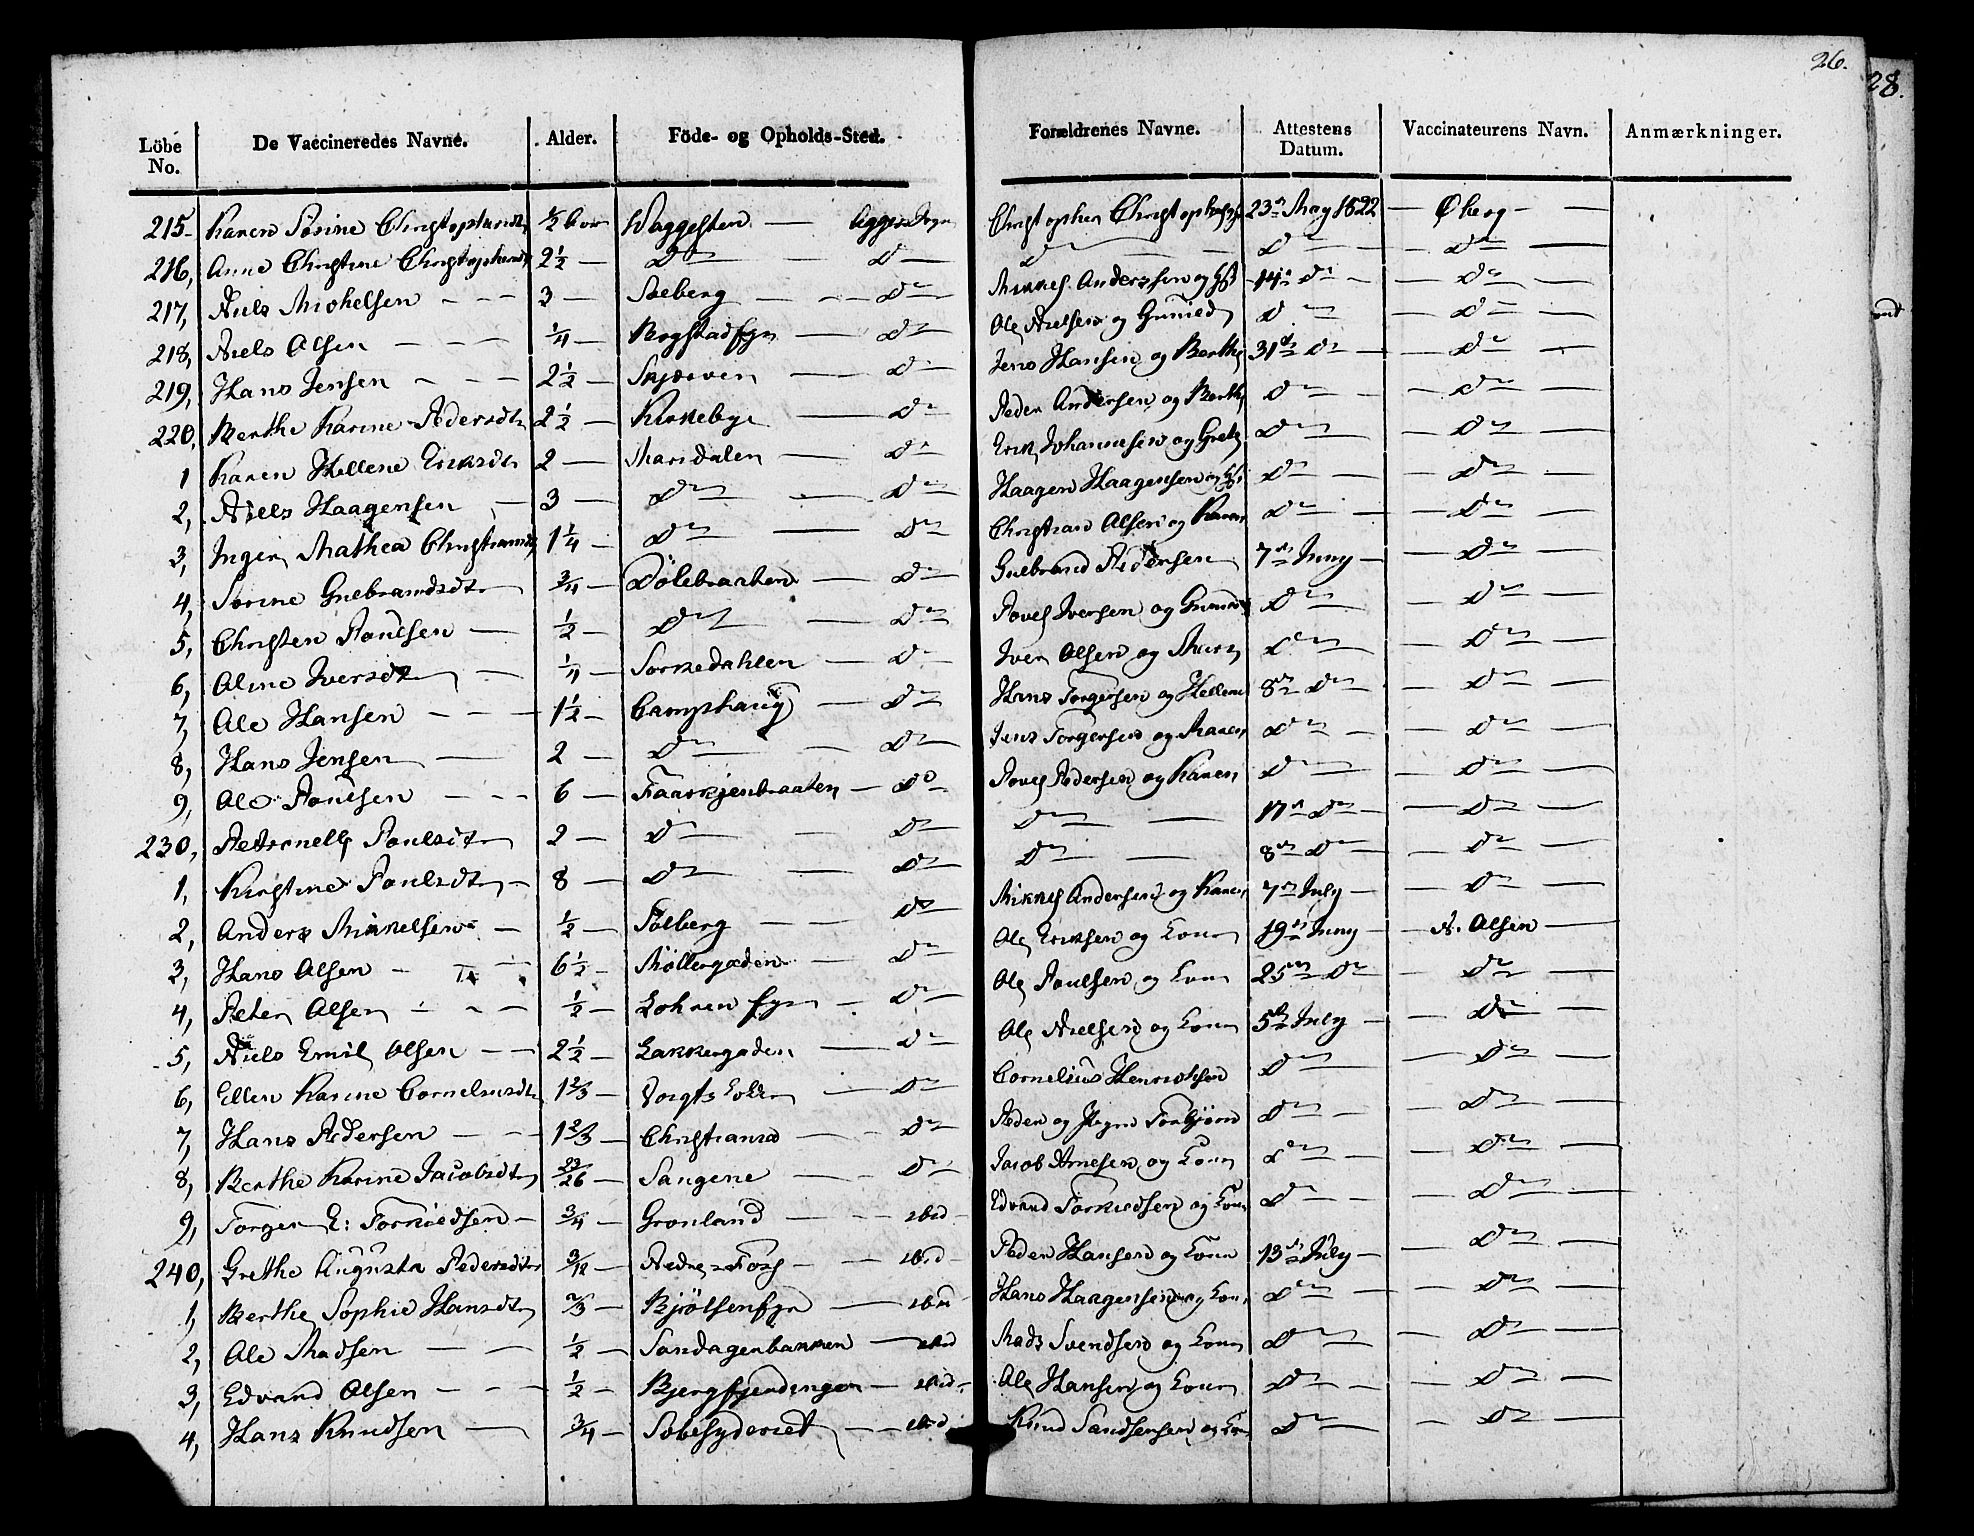 26.
28.
Löbe No. | De Vaccineredes Navne. | Alder. | Föde- og Opholds-Sted. | Forældrenes Navne. | Attestens Datum. | Vaccinateurens Navn. | Anmærkninger.
215 Karen Sörine Christophersdt ½ Waggesten — Aggers Sogn Christopher 23de May 1822 — Öberg —
216, Anne Christine 2½ — Do — Do — Do — Do — Do —
217, Niels Michelsen — 3 — Solberg — Do Mikkel Anderssen og 14de Do — Do —
218, Niels Olsen — ¼ — Rogstadfgn — Do Ole Nielsen og Gunild Do — Do —
219, Hans Jensen — 2½ — Skjærven — Do Jens Hansen og Berthe 31te Do — Do —
220, Berthe Karine Pedersdt 2½ — Kirkebye — Do Peder Andersen og Berthe Do — Do —
1 Karen Hellene Eriksdt 2 — Maridalen — Do Erik Johannesen og Grethe Do — Do —
2, Niels Haagensen — 3 — Do — Do Haagen Haagensen og Do — Do —
3, Inger Mathea 1¼ — Do — Do Christian Olsen og Karen Do — Do —
4, Sörine Gulbrandsdt ¾ — Dölebraaten — Do Gulbrand Pedersen 7de Juny — Do —
5, Christen Poulsen — ½ — Do — Do Povel Iversen og Do — Do —
6, Oline Iversdt — ¼ — Sorkedahlen — Do Iver Olsen og Do — Do —
7, Ole Hansen — 1½ — Camphaug — Do Hans Torgersen og Hellene 8de Do — Do —
8, Hans Jensen — 2 — Do — Do Jens Torgersen og Maren Do — Do —
9, Ole Poulsen — 6 — — Do Povel Pedersen og Karen Do — Do —
230, Petronelle Poulsdt 2 — Do — Do Do — 17de Do — Do —
1, Kirstine Poulsdt — 8 — Do — Do Do — 8de Do — Do —
2, Anders Mikkelsen — ½ — Solberg — Do Mikkel Andersen og Karen 7de July — Do —
3, Hans Olsen — 6½ — Möllergaden — Do Ole Eriksen og Kone 19de Juny — N. Olsen —
4, Peter Olsen — ½ — — Do Ole Poulsen og Kone 25de Do — Do —
5, Niels Emil Olsen — 2½ — Lakkegaden — Do Ole Nielsen og Kone 5te July — Do —
6, Ellen Karine Corneliusdt 1⅔ — — Do Cornelius Henriksen Do — Do —
7, Hans Pedersen — 1⅔ — Christiania — Do Peder og Torbjörn Do — Do —
8, Berthe Karine Jacobsdt 23/26 — Sangene — Do Jacob Arnesen og Kone Do — Do —
9, Torger E: Torkildsen — ¾ — Grönland — ibid — Edvard Torkildsen og Kone Do — Do —
240, Grethe Augusta Pedersdt 3/12 — — ibid — Peder Hansen og Kone 13de July — Do —
1, Berthe Sophie Hansdt ⅔ — Bjölsenfgn — ibid Hans Haagensen og Kone Do — Do —
2, Ole Madsen — ½ — — ibid Mads Svendsen og Kone Do — Do —
3, Edvard Olsen — ½ — Bjergfjerdingen — ibid — Ole Hansen og Kone Do — Do —
4, Hans Knudsen — ¾ — — ibid Knud og Kone Do — Do —